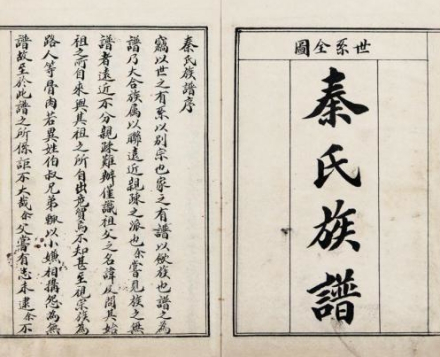 世系全圖
秦氏族譜
秦氏族譜序
竊以世之有系以別宗也家之有譜以敘族也譜之為
譜乃大合族属以聯遠近親踈之派也余嘗見族之無
譜者遠近不分親踈難辦僅識祖父之名諱及問其始
祖之所自来與其祖之所自出竟焉不知甚至視宗族為
路人等骨肉若異姓伯叔兄弟輙以小嫌相搆怨為無
譜故至於此譜之所係詎不大哉余父嘗有志未逮余不